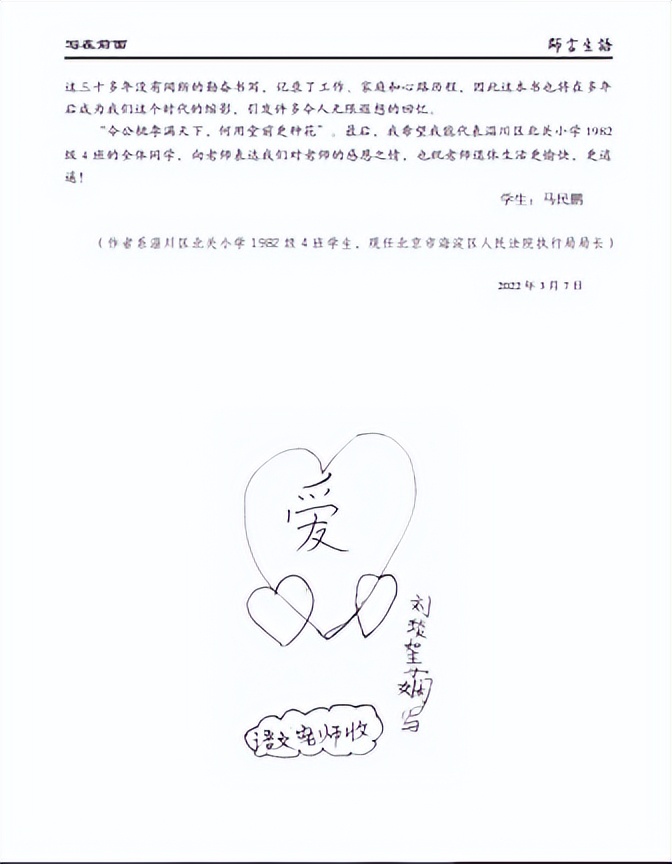 写在前面
师言生语
这三十多年没有间断的勤奋书写，记录了工作、家庭和心路历程，因此这本书也将在多年
后成为我们这个时代的缩影，引发许多令人无限遐想的回忆。
“令公桃李满天下，何用堂前更种花”。最后，我希望我能代表淄川区北关小学1982
级4班的全体同学，向老师表达我们对老师的感恩之情，也祝老师退休生活更愉快，更逍
遥！
学生：马民鹏
（作者系淄川区北关小学1982级4班学生，现任北京市海淀区人民法院执行局局长）
2022年3月7日
爱
刘
写
语文老师收